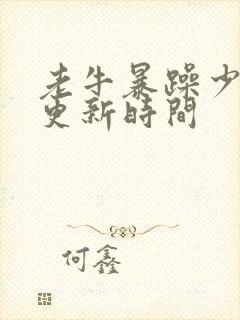 老牛暴躁少
更新時間
何鑫